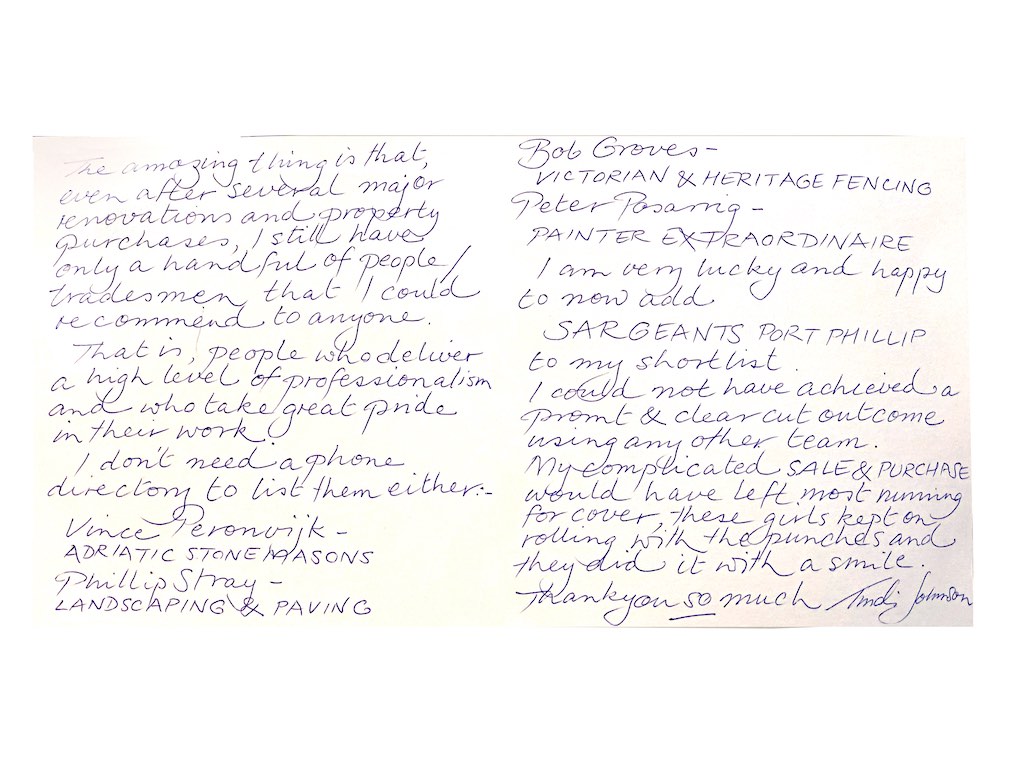 The amazing thing is that,
even after several major
renovations and property
purchases, I still have
only a handful of people/
tradesmen that I could
recommend to anyone.
That is, people who deliver
a high level of professionalism
and who take great pride
in their work.
I don't need a phone
directory to list them either:-
Vince Peronvijk -
ADRIATIC STONEMASONS
Phillip Stray -
LANDSCAPING & PAVING
Bob Groves -
VICTORIAN & HERITAGE FENCING
Peter -
PAINTER EXTRAORDINAIRE
I am very lucky and happy
to now add
SARGEANTS PORT PHILLIP
to my shortlist.
I could not have achieved a
promt & clear cut outcome
using any other team.
My complicated SALE & PURCHASE
would have left most running
for cover, these girls kept on
rolling with the punches and
they did it with a smile.
Thankyou so much Johnson